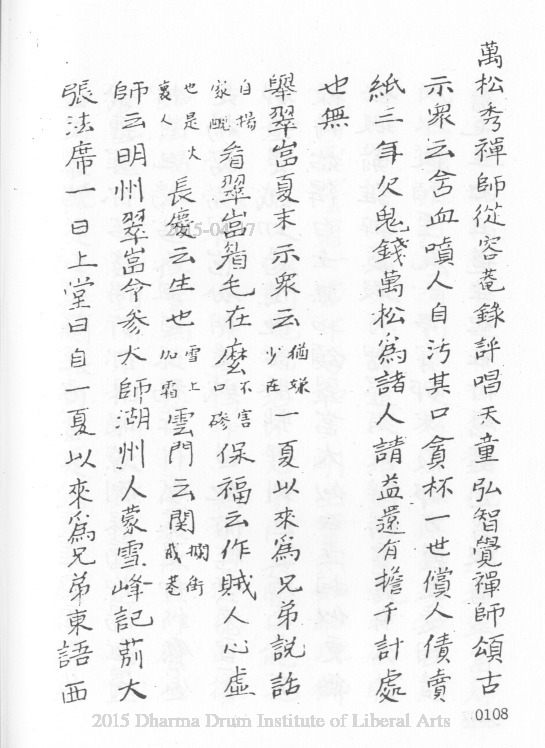 萬松秀禪師從容菴錄評唱天童弘智覺禪師頌古
示衆云含血噴人自汚其口貪杯一世償人債賣
紙三年欠鬼錢萬松爲諸人請益還有擔千計處
也無
舉翠嵓夏末示衆云猶嫌少在一夏以來爲兄弟說話
自揚家醜看翠嵓眉毛在麼不害口磣保福云作賊人心虛
也是火裏人長慶云生也雪上加霜雲門云関攔街截巷
師云明州翠嵓今參大師湖州人蒙雪峰記莂大
張法席一日上堂曰自一夏以來爲兄弟東語西
0108
2015 Dharma Drum Institute of Liberal Arts